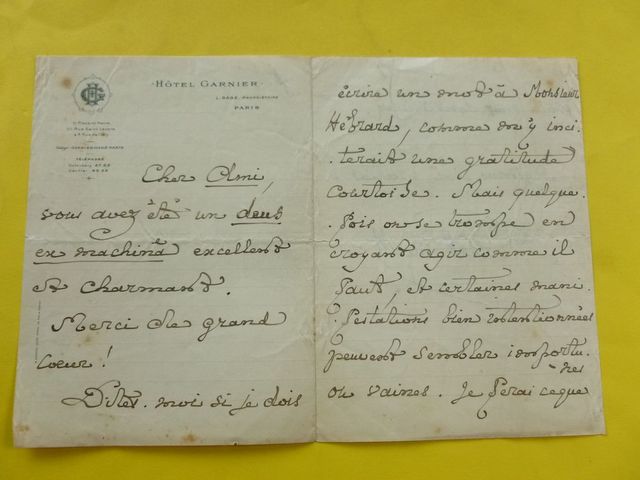 HÔTEL GARNIER
PARIS
TÉLÉPHONE
Cher Ami,
vous avez été un deus
ex machinâ excellent
et charmant.
Merci de grand
cœur!
Dites-moi si je dois
écrire un mot à Monsieur
Hébrard, comme m'y inci-
-terait une gratitude
courtoise. Mais quelque-
-fois on se trompe en
croyant agir comme il
faut, et certaines mani-
-festations bien intentionnées
peuvent sembler importu-
-nes
ou vaines. Je ferai ce que